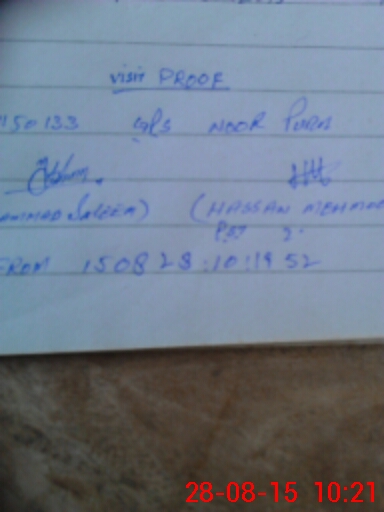 visit PROOF
1150133 GPS NOOR PURA
AMMAD SALEEM) (HASSAN MEHMOO
PST
FROM 150828:10:1952
28-08-15 10:21